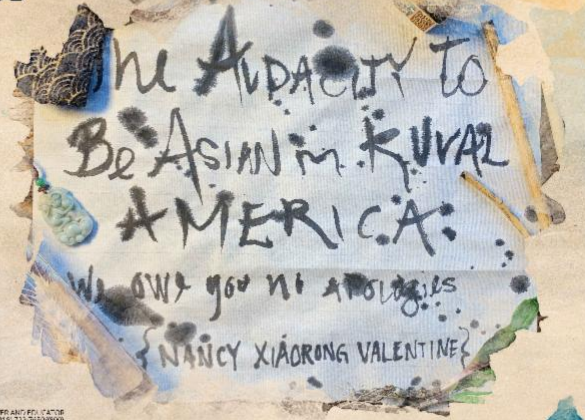 The AUDACITY To
Be ASIAN in RURAL
AMERICA:
We owe you no apologies
{NANCY XIAORONG VALENTINE}
ER AND EDUCATOR